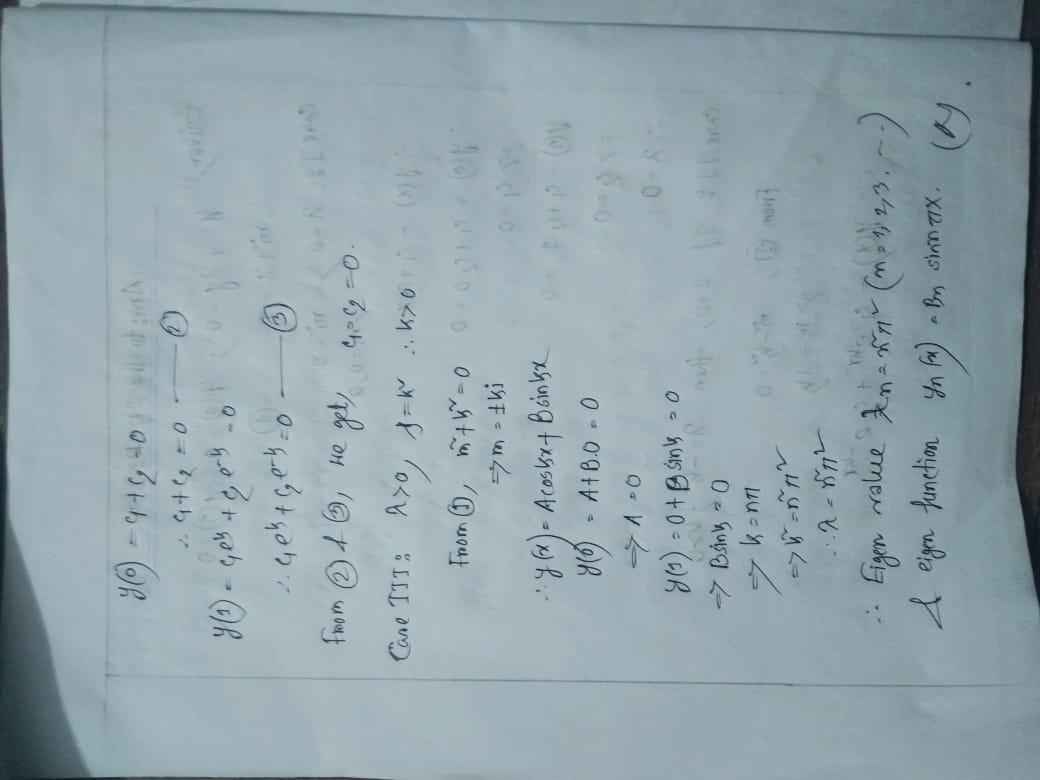 y(0) = c₁+c₂ = 0
∴ c₁+c₂ = 0 —— ②
y(1) = c₁eᵏ + c₂e⁻ᵏ = 0
∴ c₁eᵏ + c₂e⁻ᵏ = 0 —— ③
From ② & ③, we get, c₁=c₂=0.
Case III: λ>0, λ=k² ∴ k>0
From ①, m²+k²=0
⇒ m = ±ki
∴ y(x) = A cos kx + B sin kx
y(0) = A+B.0 = 0
⇒ A = 0
y(1) = 0 + B sin k = 0
⇒ B sin k = 0
⇒ k = nπ
⇒ k² = n²π²
∴ λ = n²π²
∴ Eigen value λn = n²π² (n = 1, 2, 3. ...)
& eigen function yn(x) = Bn sin nπx.